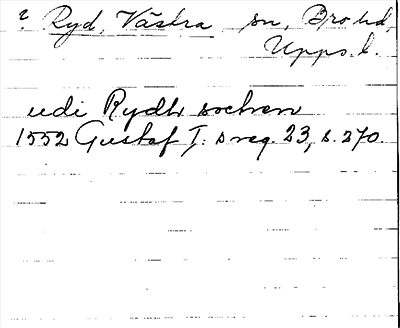 ? Ryd, Västra sn, Bro hd,
Upps. l.
udi Rydh sochen
1552 Gustaf I:s reg. 23, s. 270.